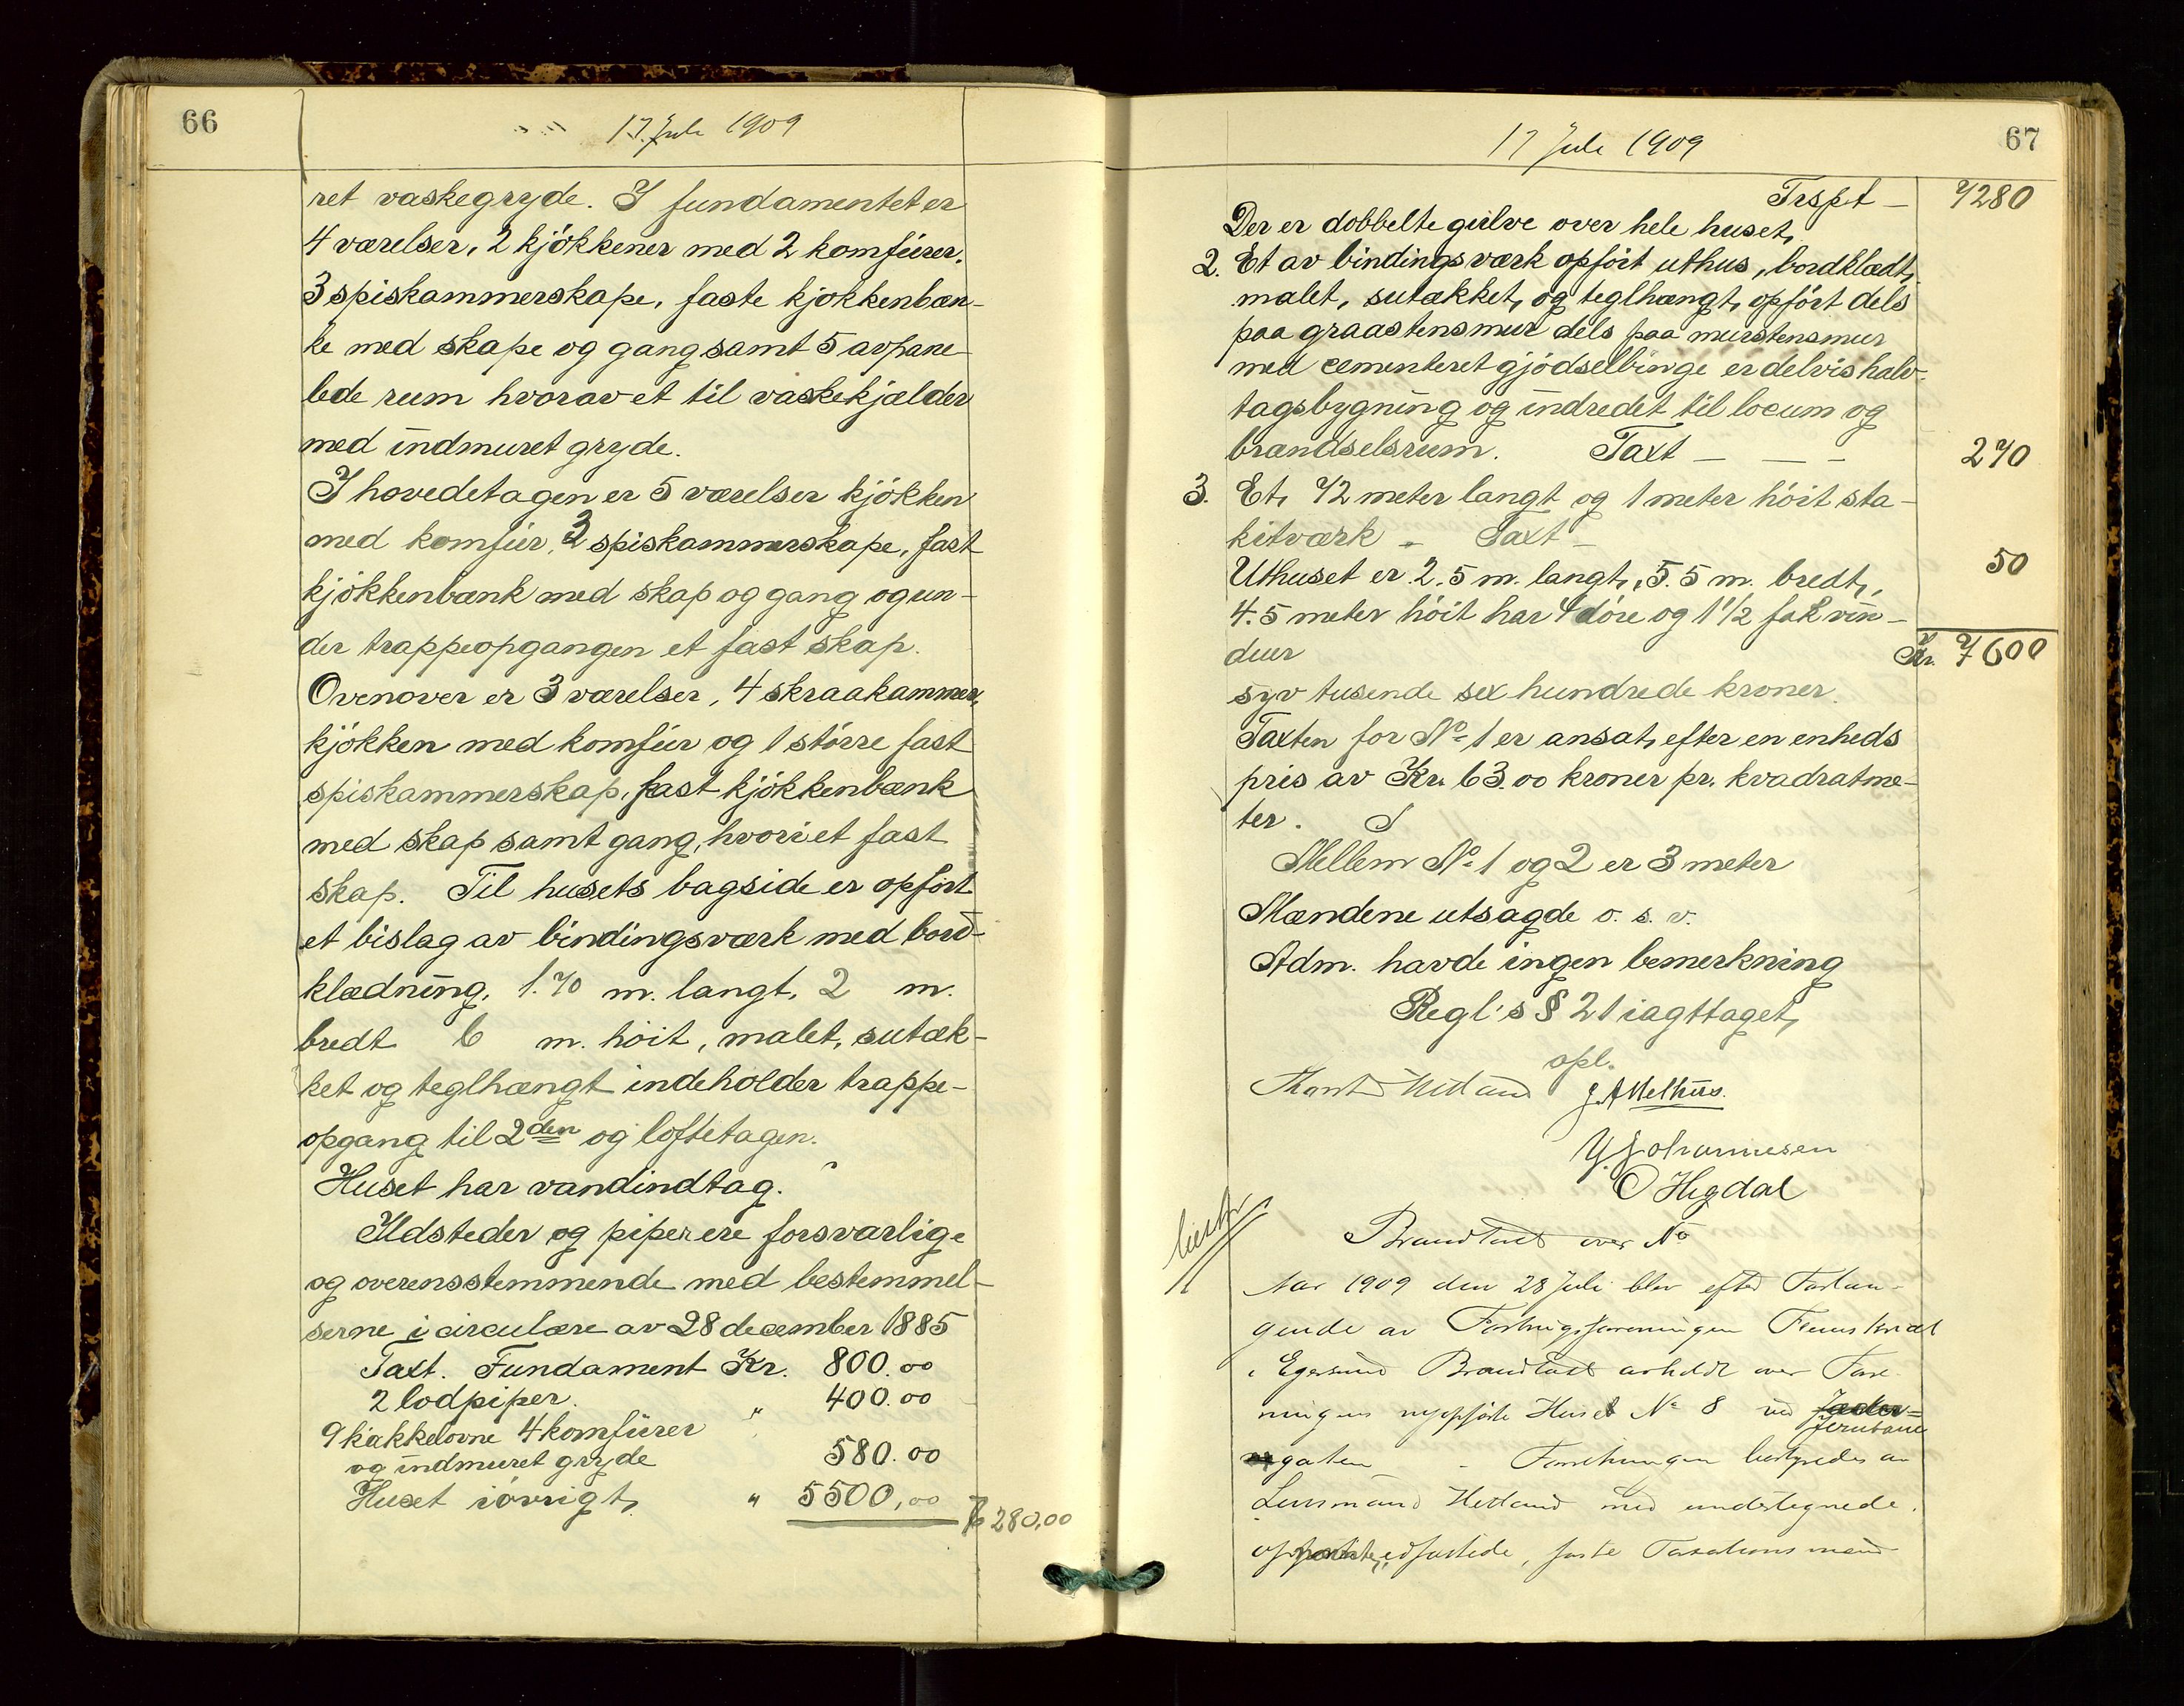 66
17. Juli 1909
ret vaskegryde. I fundamentet er
4 værelser, 2 kjøkkener med 2 komfürer.
3 spiskammerskape, faste kjøkkenbæn-
ke med skape og gang samt 5 avpane
lede rum hvorav et til vaskekjælder
med indmuret gryde.
I hovedetagen er 5 værelser kjøkken
med komfür, 3 spiskammerskape, fast
kjøkkenbænk med skap og gang og un-
der trappeopgangen et fast skap.
Ovenover er 3 værelser, 4 skraakammer,
kjøkken med komfür og 1 større fast
spiskammerskap, fast kjøkkenbænk
med skap samt gang, hvori et fast
skap. Til husets bagside er opført
et bislag av bindingsværk med bord-
klædning, 1.70 m. langt, 2 m.
bredt 6 m. høit, malet, sutæk-
ket og teglhængt indeholder trappe-
opgang til 2den og loftetagen.
Huset har vandindtag.
Ildsteder og piper ere forsvarlige
og overensstemmende med bestemmel-
serne i circulære av 28 december 1885
Taxt. Fundament Kr. 800.00
2 lodpiper. " 400.00
9 kakkelovne 4 komfürer
og indmuret gryde 580.00
Huset iøvrigt, " 5500,00
7280,00
17 Juli 1909
67
Trspt - 7280
Der er dobbelte gulve over hele huset,
2. Et av bindingsværk opført uthus, bordklædt,
malet, sutækket, og teglhængt, opført dels
paa graastensmur dels paa murstensmur
med cementeret gjødselbinge er delvis halv-
tagsbygning og indredet til locum og
brændselsrum. Taxt - - - 270
3. Et, 72 meter langt og 1 meter høit sta-
kitværk - Taxt - 50
Uthuset er 2.5 m. langt, 5.5 m. bredt,
4.5 meter høit har 4 døre og 1 1/2 fak vin-
duer Kr. 7600
syv tusende sex hundrede kroner.
Taxten for No 1 er ansat, efter en enheds
pris av Kr. 63.00 kroner pr. kvadratme-
ter.
Mellem No 1 og 2 er 3 meter
Mændene utsagde o. s. v.
Adm. havde ingen bemerkning
Regl's § 21 iagttaget,
opl.
Hetland J. A Melhüs.
Y. Johannesen
O Hegdal
Brandtaxt over No
Aar 1909 den 28 Juli blev efter Forlan-
gende av Foreningen
i Egersund Brandtaxt avholdt over Fore-
ningens nyopførte Hus No 8 ved Jæder=
Jernbane
gaten - Forretningen bestyredes av
Lensmand Hetland med undertegnede
edfæstede, faste Taxationsmænd